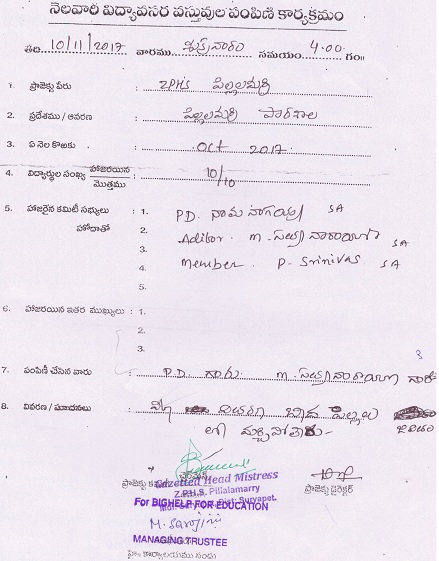 నెలవారి విద్యావసర వస్తువుల పంపిణి కార్యక్రమం
తేది 10/11/2017 వారము శుక్రవారం సమయం 4.00 గం॥
1. ప్రాజెక్టు పేరు : ZPHS పిల్లలమర్రి
2. ప్రదేశము / ఆవరణ : పిల్లలమర్రి పాఠశాల
3. ఏ నెల కొఱకు : Oct 2017
4. విద్యార్థుల సంఖ్య హాజరయిన / మొత్తము : 10/10
5. హాజరైన కమిటీ సభ్యులు : 1. P.D. నామ నాగయ్య SA
హోదాతో 2. Aditor. M. సత్యనారాయణ SA
3.
4. Member. P. Srinivas SA
5.
6. హాజరయిన ఇతర ముఖ్యులు : 1.
2.
3.
7. పంపిణీ చేసిన వారు : P.D. గారు. M. సత్యనారాయణ గారు
8. వివరణ / సూచనలు :
ప్రాజెక్టు చైర్మన్ ప్రాజెక్టు డైరెక్టర్
Gazetted Head Mistress
Z.P.H.S. Pillalamarry
Dist: Suryapet.
For BIGHELP FOR EDUCATION
M. Sarojini
MANAGING TRUSTEE